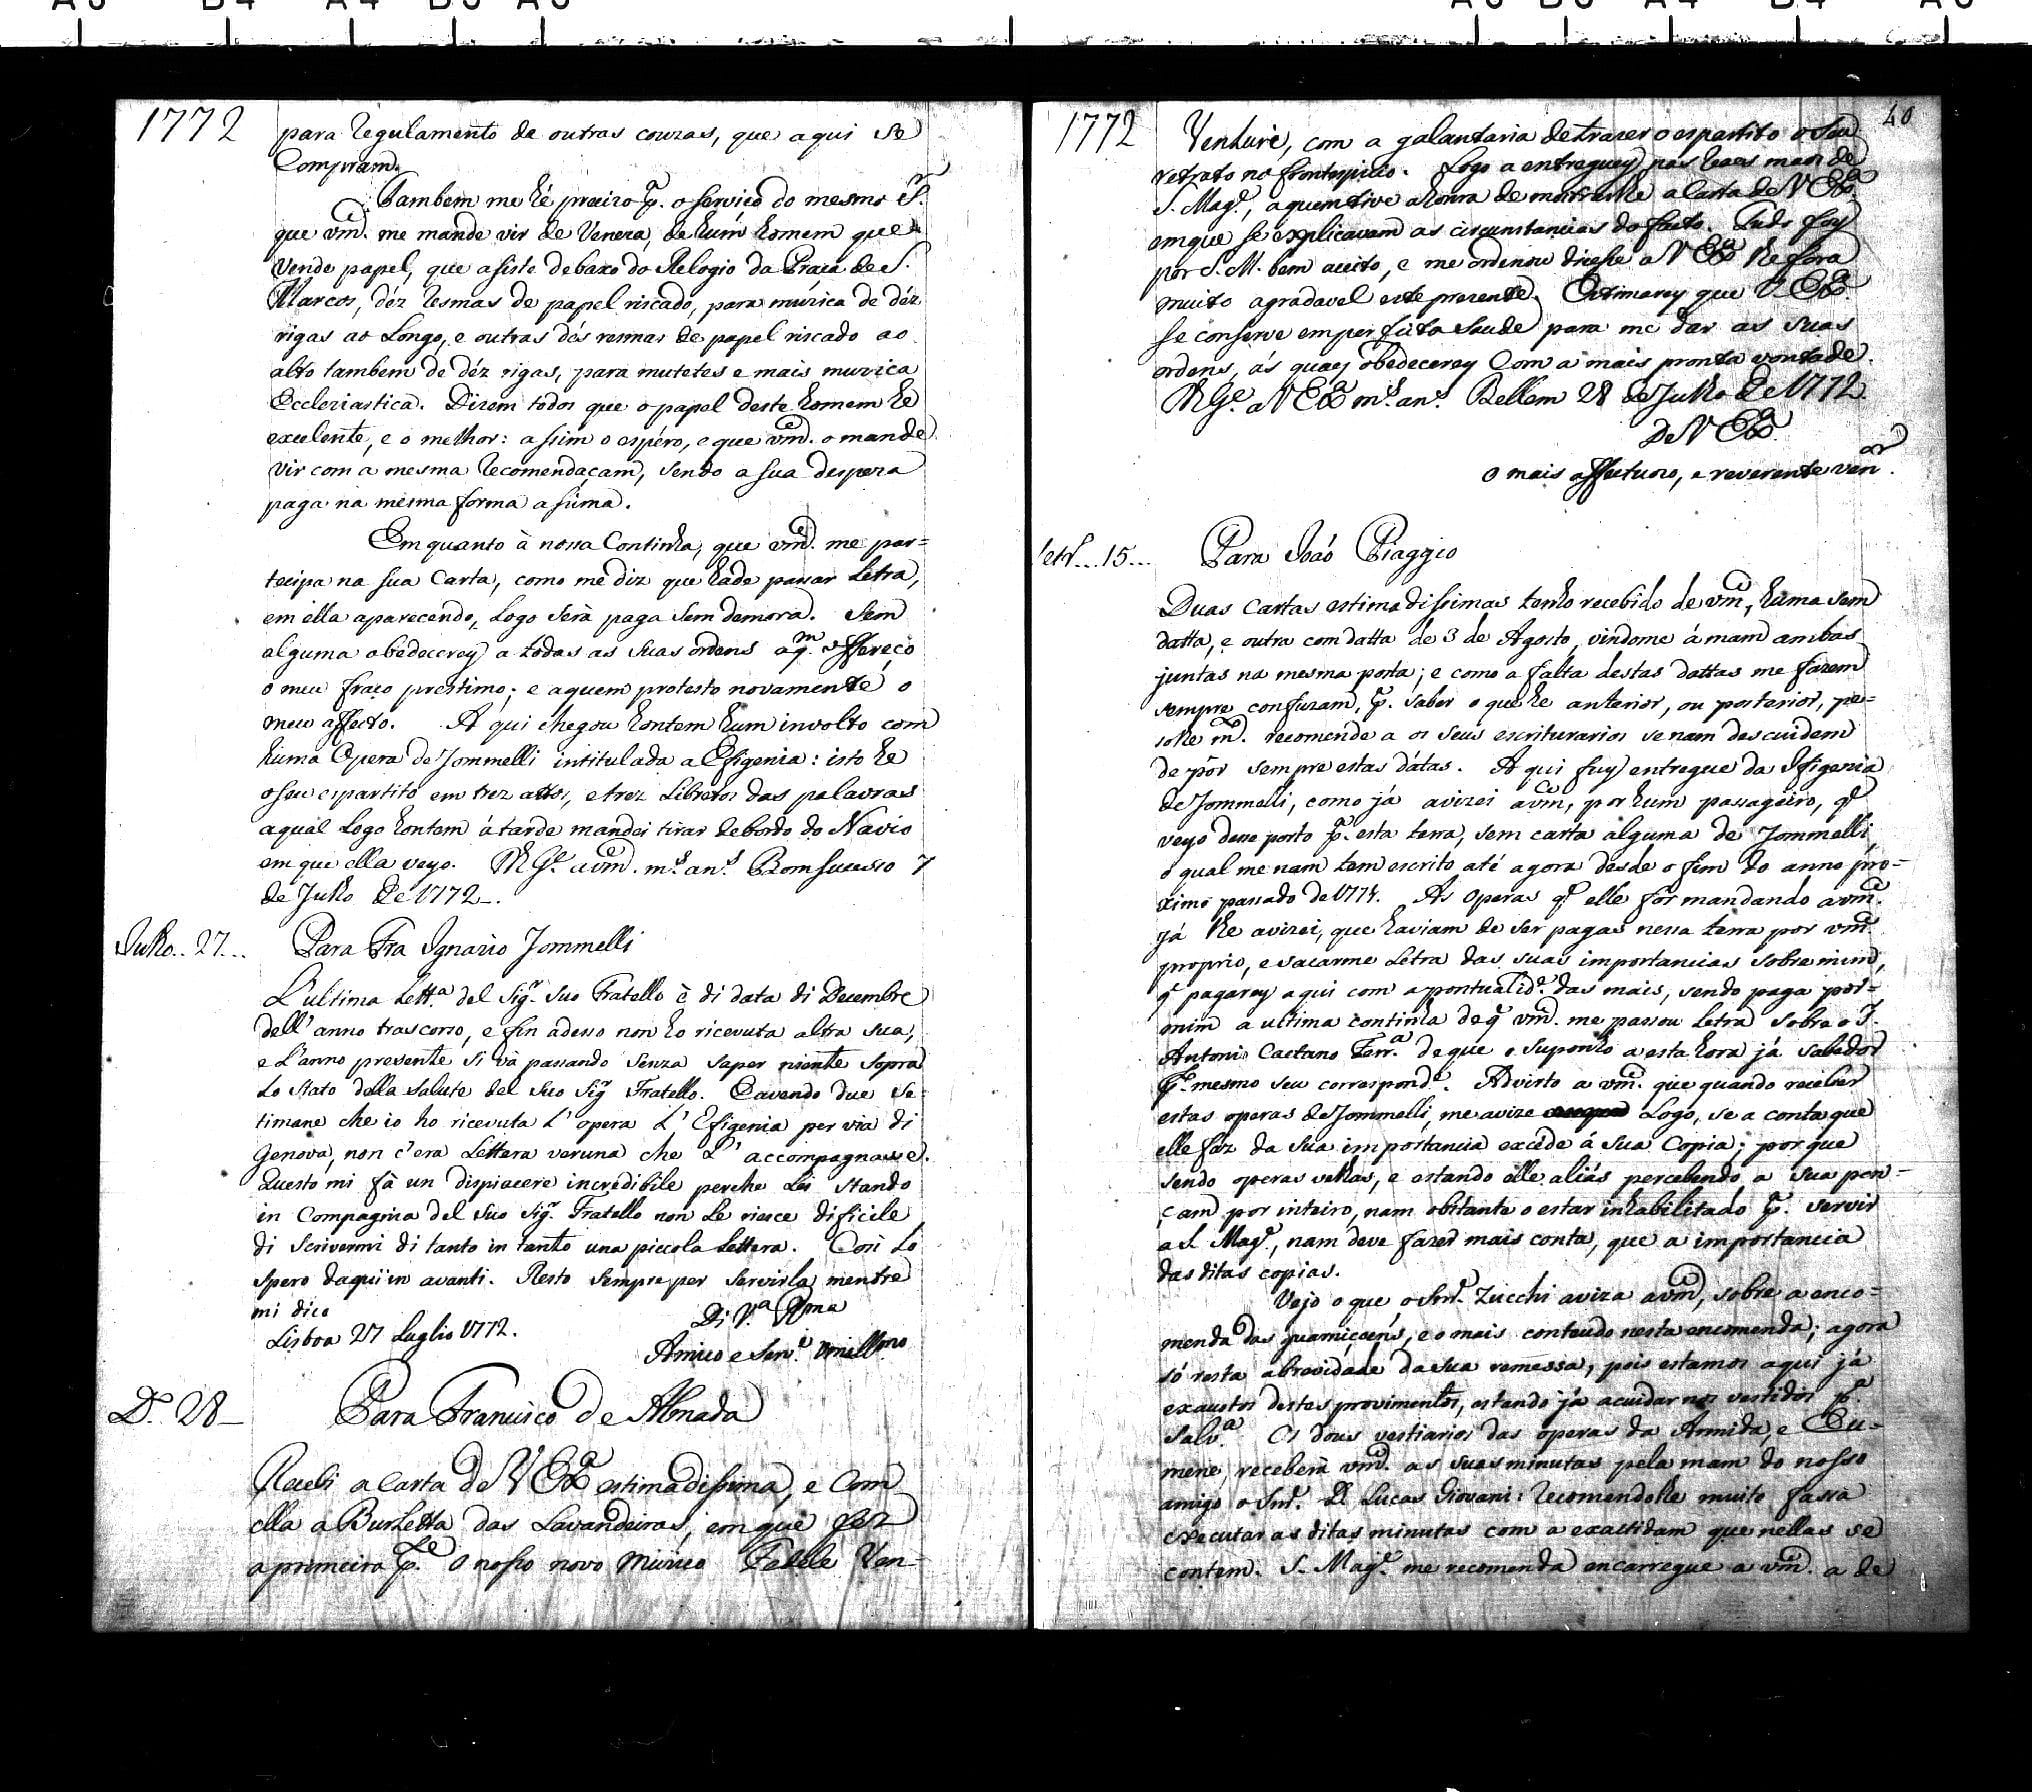 1772
para regulamento de outras couzas, que aqui se
Compram.
Tambem me hé precizo p.ª o serviço do mesmo S.r
que vm.ce me mande vir de Veneza, de hum homem que
vende papel, que asiste debaxo do Relogio da Praça de S.
Marcos, déz resmas de papel riscado, para múzica de déz
rigas ao Longo, e outras dés resmas de papel riscado ao
alto tambem de déz rigas, para mutetes e mais muzica
Eccleziastica. Dizem todos que o papel deste homem he
excelente, e o melhor: assim o espéro, e que vm.ce o mande
vir com a mesma recomendaçam, sendo a sua despeza
paga na mesma forma assima.
Em quanto à nossa Continha, que vm.ce me par=
tecipa na sua Carta, como me diz que hade passar Letra,
em ella aparecendo, Logo serà paga sem demora. Sem
alguma obedecerey a todas as suas ordens a q.m offereço
o meu fraco prestimo; e aquem protesto novamente o
meu affecto. A qui chegou hontem hum involto com
huma Opera de Jommelli intitulada a Efigenia: isto he
o seu espartito em trez attos, e trez Libretos das palavras
aqual Logo hontem á tarde mandei tirar de bordo do Navio
em que ella veyo. D.s G.e a vm.ce m.s an.s Bom sucesso 7
de Julho de 1772_.
Julho.. 27...
Para Fra Ignazio Jommelli
L'ultima Lett.a del Sig.r suo Fratello è di data di Decembre
dell'anno trascorso, e fin adesso non ho ricevuta altra sua,
e L'anno presente si và passando senza saper niente sopra
Lo stato della salute del suo Sig.r Fratello. Eavendo due se=
timane che io ho ricevuta L'opera L'Efigenia per via di
Genova, non c'era Lettera veruna che L'accompagnasse.
Questo mi fà un dispiacere incredibile perche Lei stando
in Compagnia del suo Sig.r Fratello non Le riesce dificile
di scrivermi di tanto in tanto una piccola Lettera. Così Lo
spero daquì in avanti. Resto sempre per servirla mentre
mi dico
Di V.a
Lisboa 27 Luglio 1772.
Amico e Serv.e Umill.mo
D.o 28_
Para Francisco de Almada
Recebi a Carta de V Ex.ª estimadissima, e com
ella a Burletta das Lavandeiras, em que fez
a primeira p.te o nosso novo Muzico Fedele Ven=
40
1772
Venture, com a galantaria de trazer o espartito o seu
retrato no frontespicio. Logo a entreguey nas Reaes maons de
S. Mag.e, a quem tive a honra de mostrarlhe a Carta de V Ex.ª
em que se explicavam as circunstancias do facto. Tudo foy
por S. M. bem aceito, e me ordenou dicesse a V Ex.ª lhe fora
muito agradavel este prezente. Estimarey que V Ex.ª
se conserve em perfeita saude para me dar as suas
ordens, ás quaes obedecerey Com a mais pronta vontade.
D.s G.e a V Ex.ª m.s an.s Bellem 28 de Julho de 1772.
De V Ex.ª
O mais affectuozo, e reverente ven.or
Setr.o... 15...
Para João Piaggio
Duas cartas estimadissimas tenho recebido de vm.ce, huma sem
datta, e outra com datta de 3 de Agosto, vindome á mam ambas
juntas na mesma posta; e como a falta destas dattas me fazem
sempre confuzam, p.ª saber o que he anterior, ou posterior, pe=
solhe m.to recomende a os seus escriturarios se nam descuidem
de pôr sempre estas dátas. A qui fuy entregue da Ifigenia
de Jommelli, como já avizei a vm.ce, por hum passageiro, q.e
veyo desse porto p.ª esta terra, sem carta alguma de Jommelli,
o qual me nam tem escrito até agora desde o fim do anno pro=
ximo passado de 1771. As operas q.e elle for mandando a vm.ce
já lhe avizei, que haviam de ser pagas nessa terra por vm.ce
proprio, e sacarme Létra das suas importancias sobre mim,
q.e pagarey aqui com a pontualid.e das mais, sendo paga por=
mim a ultima continha de q.e vm.ce me passou Letra sobre o S.r
Antonio Caetano Ferr.a de que o suponho a esta hora já sabedor
p.lo mesmo seu correspond.e. Advirto a vm.ce que quando receber
estas operas de Jommelli, me avize Logo, se a conta que
elle faz da sua importancia excéde á sua Copia; por que
sendo operas velhas, e estando elle aliás percebendo a sua pen=
çam por inteiro, nam obstante o estar inhabilitado p.ª servir
a S. Mag.e, nam déve fazer mais conta, que a importancia
das ditas copias.
Vejo o que o Snr. Zucchi aviza a vm.ce, sobre a enco=
menda das guarniçoens, e o mais conteudo nesta encomenda; agora
só resta a brevidade da sua remessa, pois estamos aqui já
exaustos destes provimentos, estando já a cuidar nos vestidos p.ª
Salv.a Os dous vestiarios das operas da Armida, e Eu=
mene, receberà vm.ce as suas minutas pela mam do nosso
amigo o Snr. D. Lucas Giovani: recomendolhe muito fassa
executar as ditas minutas com a exactidam que nellas se
contem. S. Mag.e me recomenda encarregue a vm.ce a de